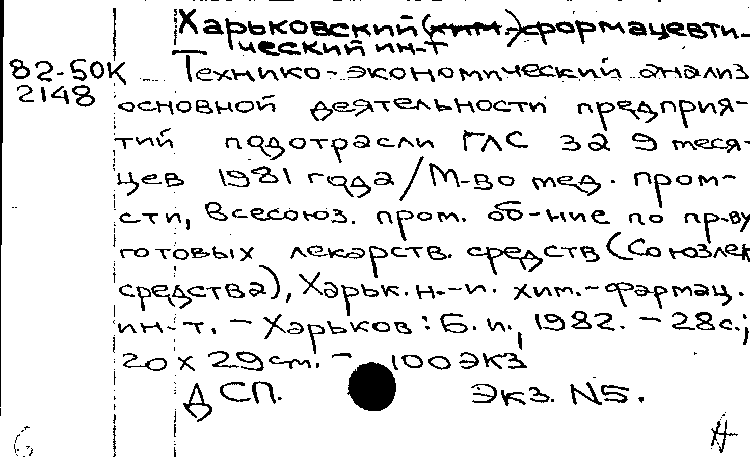 Харьковский (хим.-) формацевти-
ческий ин-т
82-50К
2148
Технико-экономический анализ
основной деятельности предприя-
тий подотрасли ГЛС за 9 меся-
цев 1981 года / М-во мед. пром-
сти, Всесоюз. пром. об-ние по пр-ву
готовых лекарств. средств (Союзлек
средства), Харьк. н.-и. хим.-фармац.
ин-т. - Харьков : Б. и., 1982. - 28 с.;
20 х 29 см. - 100 экз
ДСП. Экз. N5.